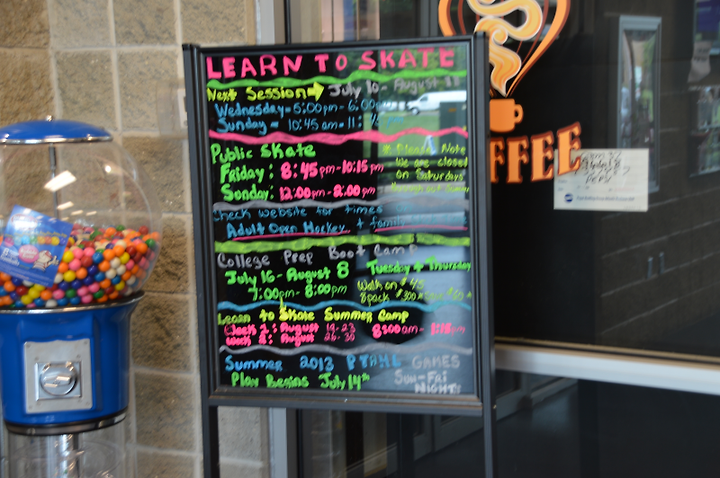 LEARN TO SKATE
Next Session → July 10 - August
Wednesday - 5:00pm - 6:00
Sunday - 10:45am - 11:
Public Skate
Friday: 8:45pm - 10:15pm
Sunday: 12:00pm - 2:00pm
Please Note
We are closed
on Saturdays
Check website for times
Adult Open Hockey + family
College Prep Boot Camp
July 16 - August 8 Tuesday + Thursday
7:00pm - 8:00pm
Walk on
8pack
Learn to Skate Summer Camp
Week 1: August 19-23
Week 2: August 26-30
Summer 2013 GAMES
Play Begins July 14th
Sun-Fri
NIGHT
FFEE